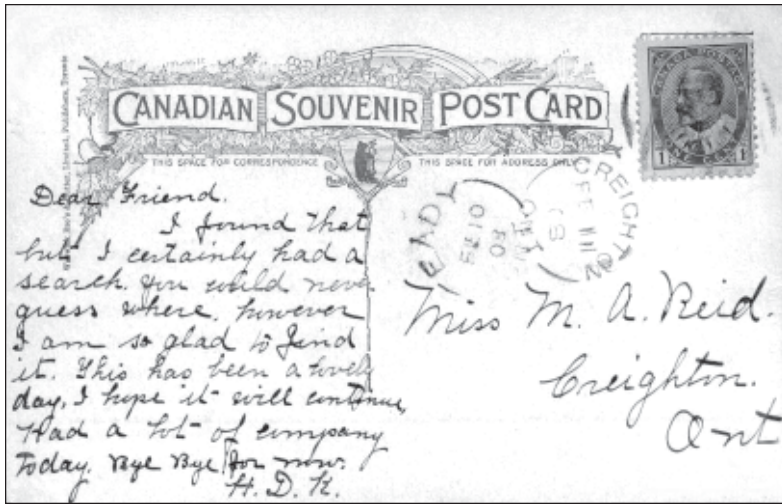 CANADIAN SOUVENIR POST CARD
THIS SPACE FOR CORRESPONDENCE
THIS SPACE FOR ADDRESS ONLY
CANADA POSTAGE
1 ONE CENT 1
EADY
SP 10
ONT
CREIGHTON
Limited, Publishers, Toronto
Dear Friend.
I found that
but I certainly had a
search. you would never
guess where. however
I am so glad to find
it. This has been a lovely
day. I hope it will continue,
Had a lot of company
today. Bye Bye for now.
H. D. K.
Miss M. A. Reid.
Creighton.
Ont